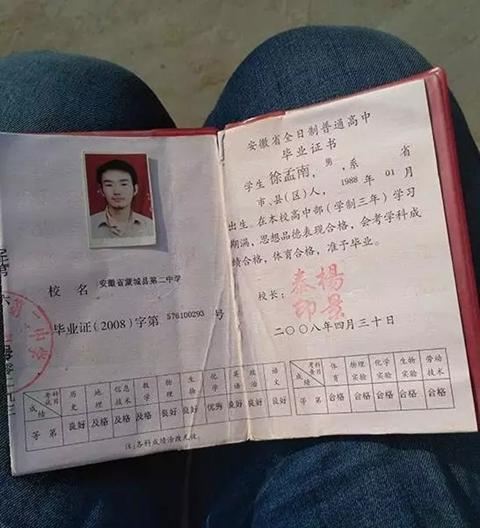 校 名 安徽省蒙城县第二中学
毕业证(2008)字第 576100293 号
考试科目 成绩 历史 地理 信息技术 数学 物理 生物 化学 英语 政治 语文
等第 良好 及格 及格 及格 良好 良好 优秀 良好 良好 良好
注:各科成绩涂改无效。
安徽省全日制普通高中
毕业证书
学生 徐孟南, 男, 系 省
市、县(区)人, 1988 年 01 月
出生。在本校高中部(学制三年)学习
期满,思想品德表现合格,会考学科成
绩合格,体育合格,准予毕业。
校长: 楊景泰印
二〇〇八年四月三十日
考查科目 成绩 体育 物理实验 化学实验 生物实验 劳动技术
等第 合格 合格 合格 合格 合格